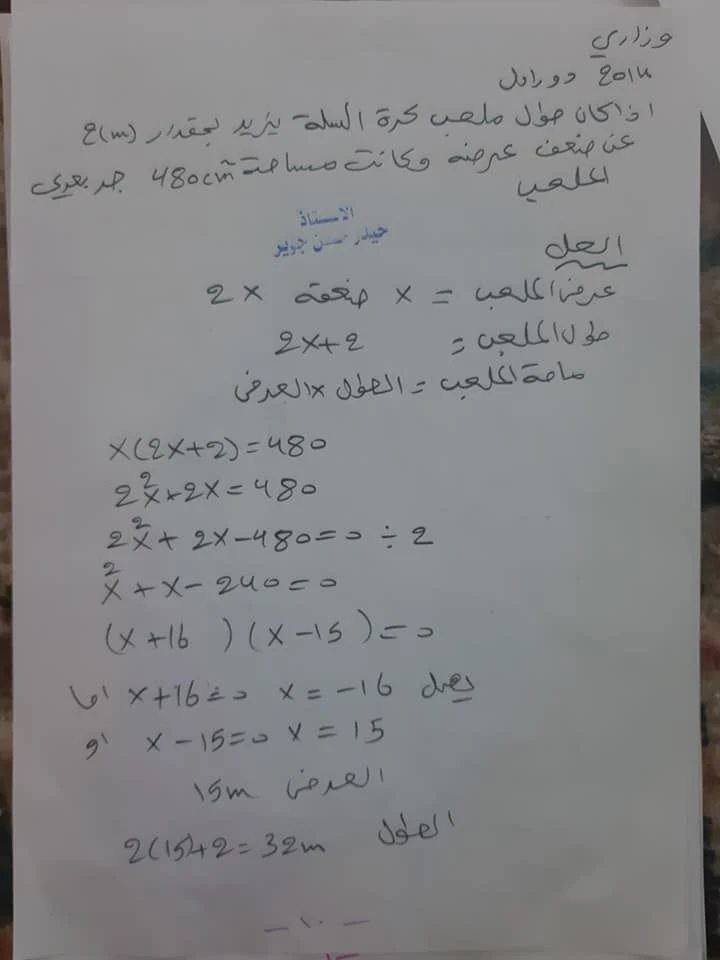 وزاري
2014 دور اول
اذا كان طول ملعب كرة السلة يزيد بمقدار 2(m)
عن ضعف عرضه وكانت مساحة 480cm² جد بعدي
الملعب
الاستاذ
حيدر حسن جوير
الحل
عرض الملعب = x ضعفة 2x
طول الملعب = 2x+2
مساحة الملعب = الطول × العرض
x(2x+2)=480
2x²+2x=480
2x²+2x-480=0 ÷2
x²+x-240=0
(x+16)(x-15)=0
اما x+16=0 x=-16 يهمل
او x-15=0 x=15
العرض 15m
الطول 2(15)+2=32m
- ١٠ -